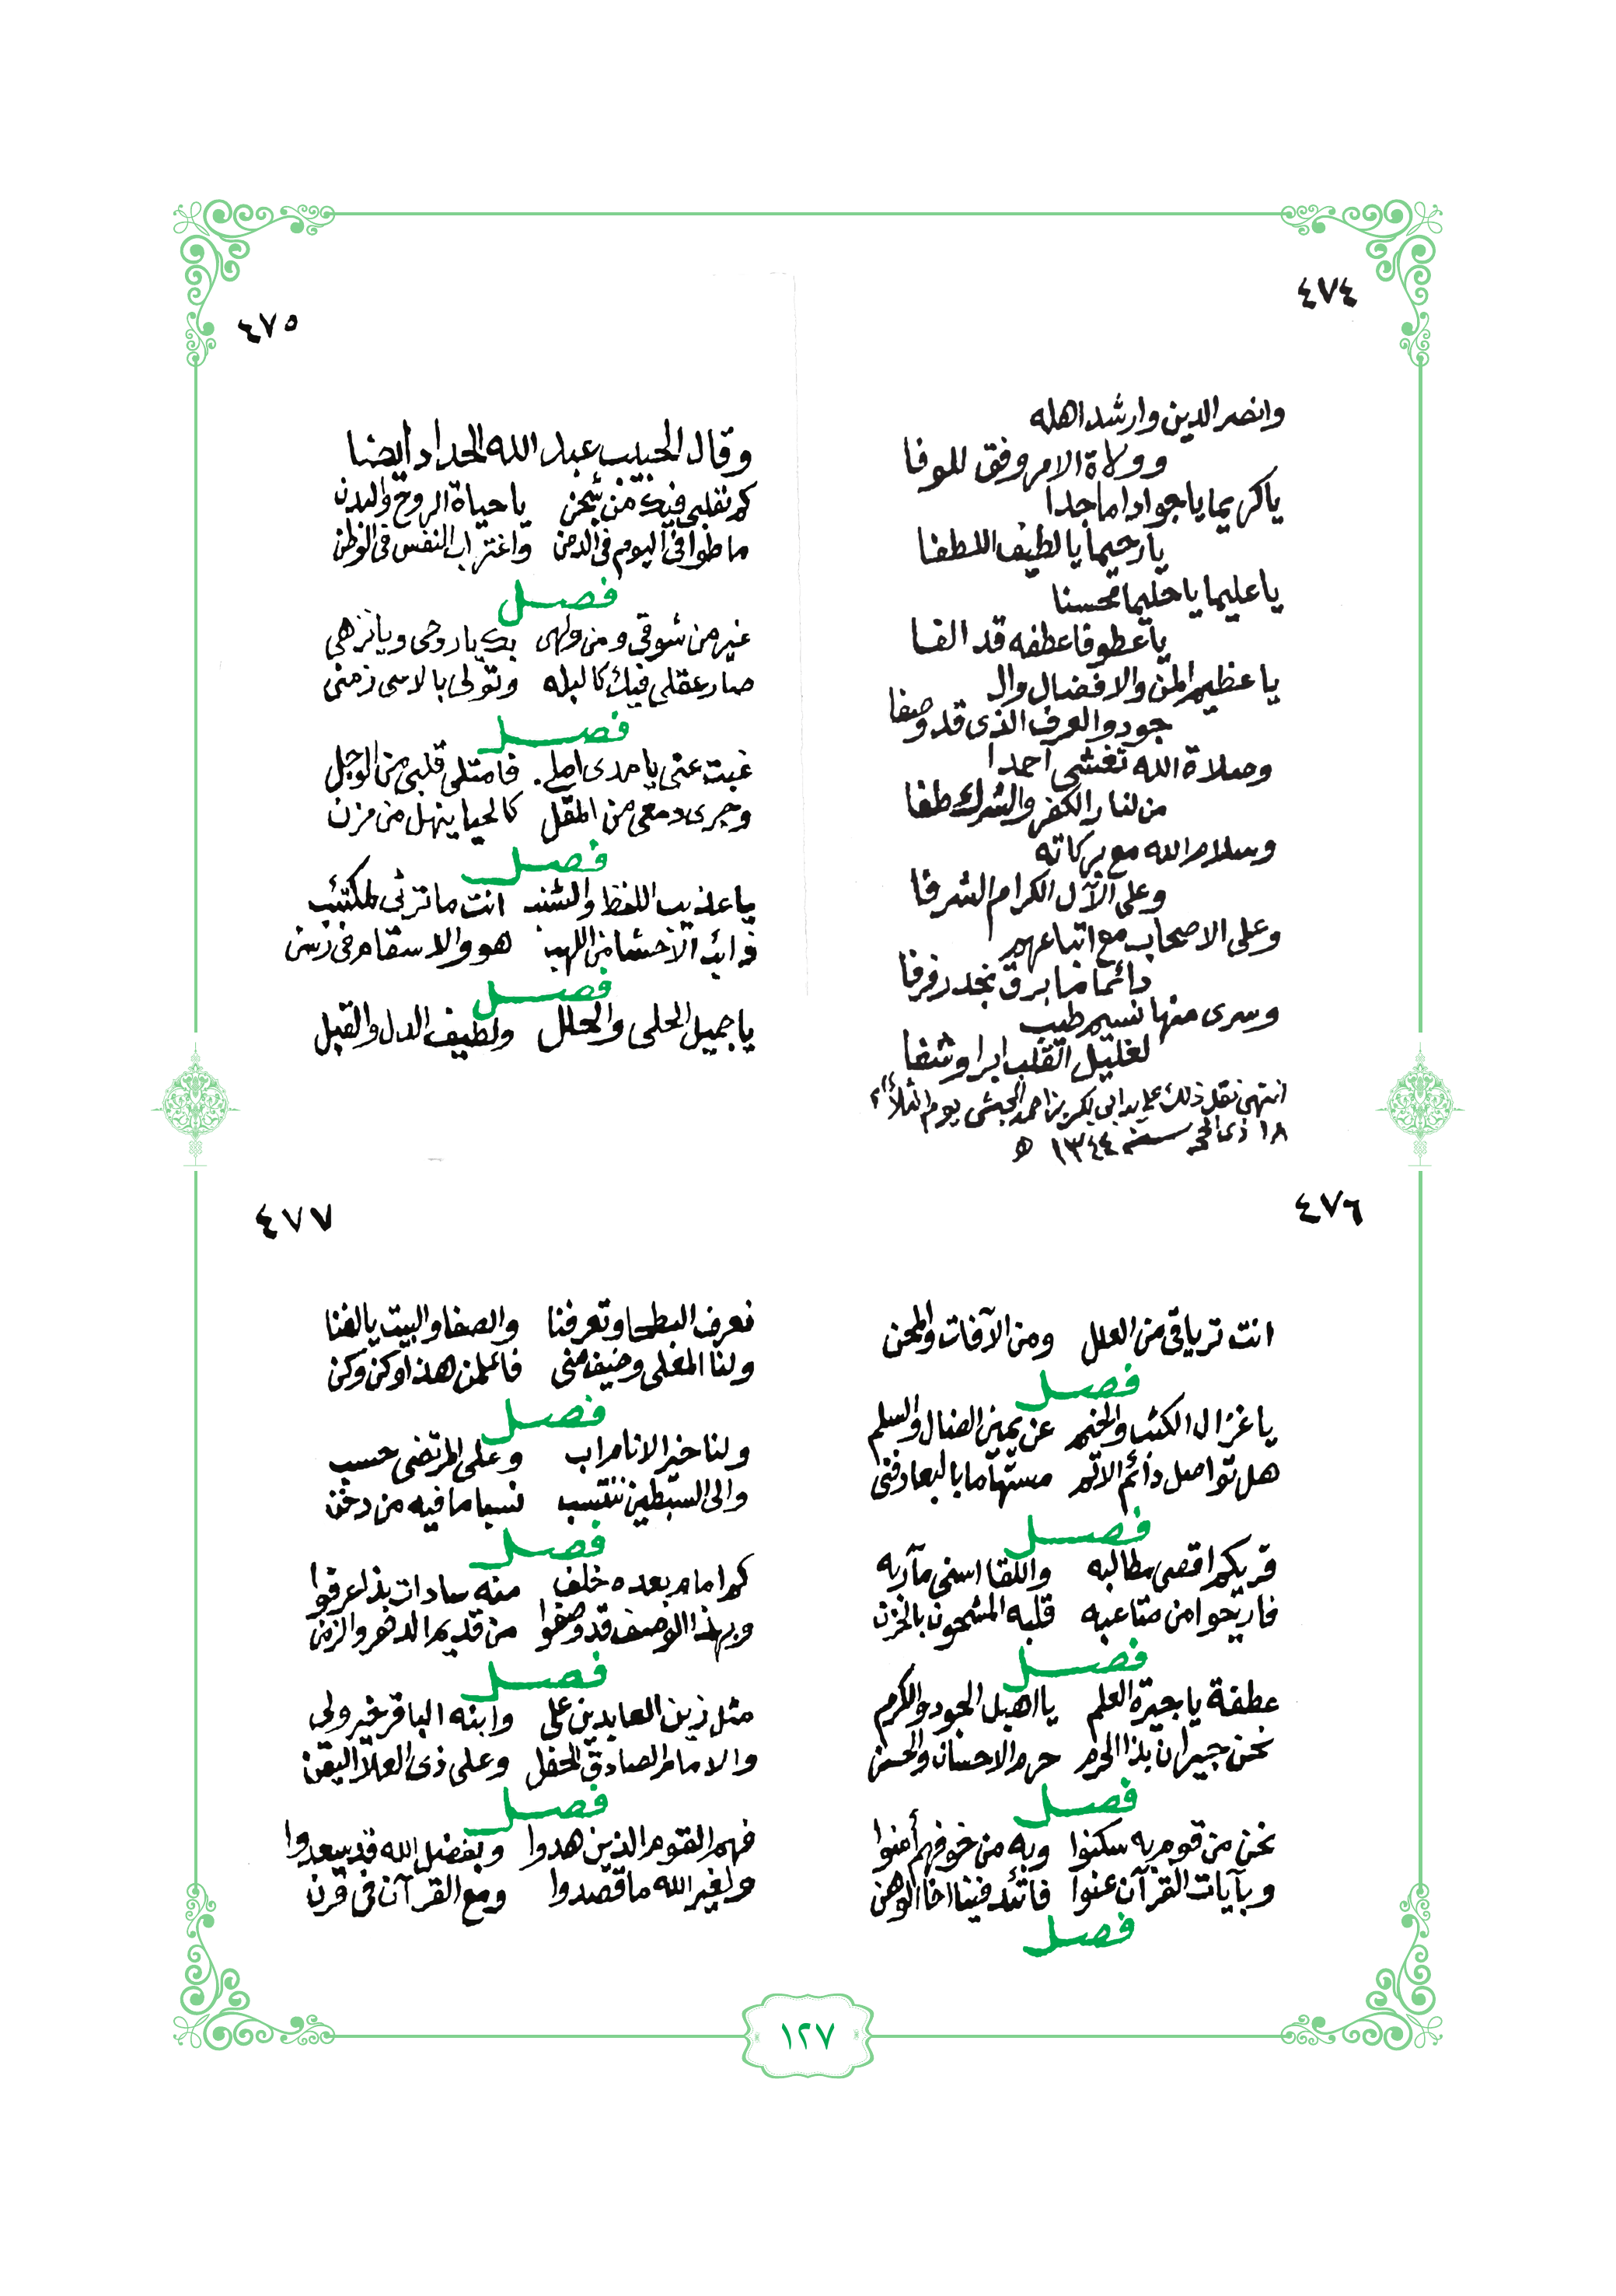 ٤٧٤
وانصر الدين وارشد اهله
وولاة الامر وفق للوفا
ياكريما ياجوادا ماجدا
يارحيما يالطيف اللطفا
ياعليما ياحليما محسنا
ياعطوفا عطفه قد الفا
ياعظيم المن والافضال وال
جود والعرف الذى قد وصفا
وصلاة الله تغشى احمدا
من لنار الكفر والشرك طفا
وسلام الله مع بركاته
وعلى الآل الكرام الشرفا
وعلى الاصحاب مع اتباعهم
دائما ما برق نجد رفرفا
وسرى منها نسيم طيب
لغليل القلب ابرا وشفا
انتهى نقل ذلك على يد ابى بكر بن احمد الحبشى يوم الثلاثاء
١٨ ذى الحجه سنة ١٣٤٤ ه
٤٧٥
وقال الحبيب عبد الله الحداد أيضا
كم بقلبى فيك من شجن ياحياة الروح والبدن
ما طوافى اليوم فى الدمن واغتراب النفس فى الوطن
فصل
غير من شوقى ومن ولهى بك ياروحى ويانزهى
صار عقلى فيك كالبله وتولى بالاسى زمنى
فصل
غبت عنى يامدى املى فامتلى قلبى من الوجل
وجرى دمعى من المقل كالحيا ينهل من مزن
فصل
ياعذيب اللفظ والشنب انت ما ترثى لمكتئب
ذائب الاحشا من اللهب هو والاسقام فى رسن
فصل
ياجميل الحلى والحلل ولطيف الدل والقبل
٤٧٦
انت ترياقى من العلل ومن الآفات والمحن
فصل
ياغزال الكثب والخيم عن يمين الضال والسلم
هل تواصل دائم الالم مستهاما بالبعاد فنى
فصل
قربكم اقصى مطالبه واللقا اسنى مآربه
فاريحوا من متاعبه قلبه المشحون بالحزن
فصل
عطفة ياجيرة العلم يااهيل الجود والكرم
نحن جيران بذا الحرم حرم الاحسان والحسن
فصل
نحن من قوم به سكنوا وبه من خوفهم أمنوا
وبآيات القرآن عنوا فاتئد فينا اخا الوهن
فصل
٤٧٧
نعرف البطحا وتعرفنا والصفا والبيت يالفنا
ولنا المعلى وخيف منى فاعلمن هذا وكن وكن
فصل
ولنا خير الانام اب وعلى المرتضى حسب
والى السبطين ننتسب نسبا ما فيه من دخن
فصل
كم امام بعده خلف منه سادات بذا عرفوا
وبهذا الوصف قد وصفوا من قديم الدهر والزمن
فصل
مثل زين العابدين على وابنه الباقر خير ولى
والامام الصادق الحفل وعلى ذى العلا اليقن
فصل
فهم القوم الذين هدوا وبفضل الله قد سعدوا
ولغير الله ما قصدوا ومع القرآن فى قرن
١٢٧